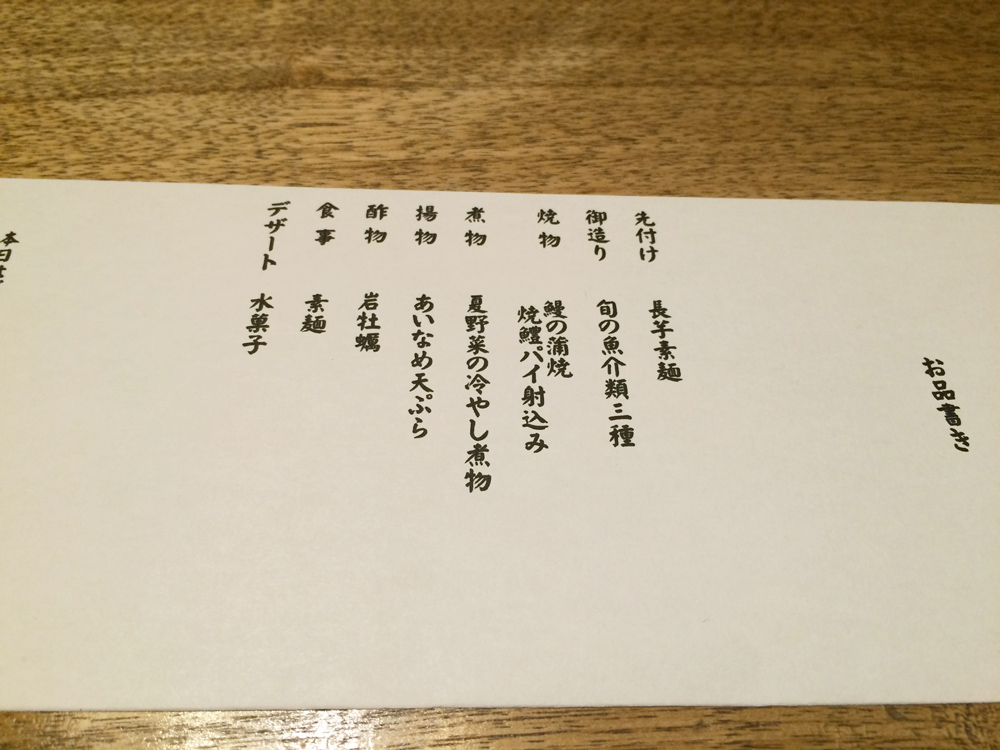 お品書き
先付け 長芋素麺
御造り 旬の魚介類三種
焼物 鰻の蒲焼
焼鱧パイ射込み
煮物 夏野菜の冷やし煮物
揚物 あいなめ天ぷら
酢物 岩牡蠣
食事 素麺
デザート 水菓子
本日